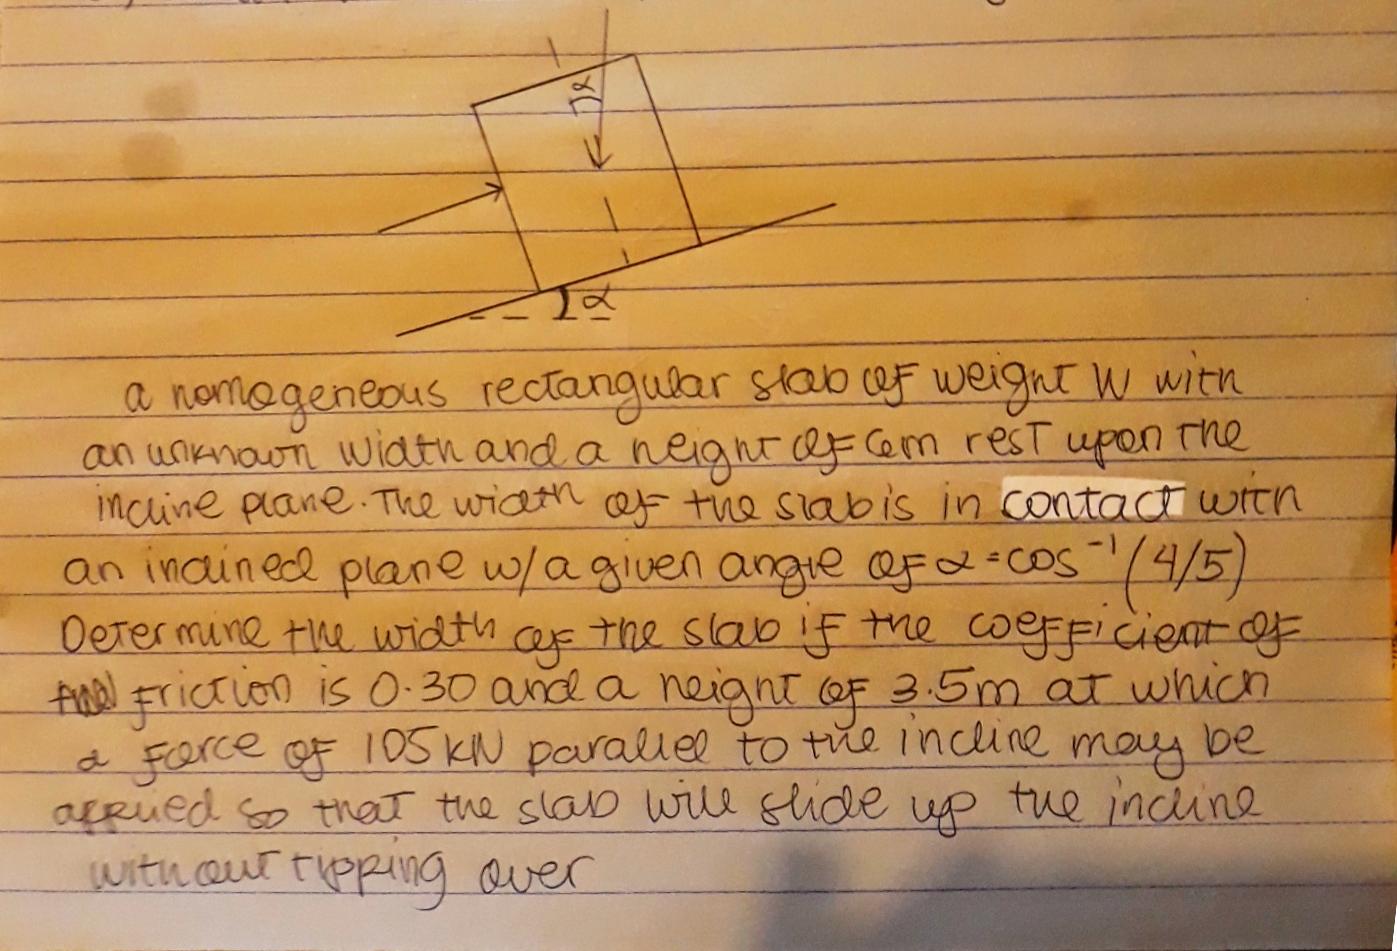 α
α
a homogeneous rectangular slab of weight W with
an unknown width and a height of 6m rest upon the
incline plane. The width of the slab is in contact with
an inclined plane w/a given angle of α = cos⁻¹(4/5)
Determine the width of the slab if the coefficient of
friction is 0.30 and a height of 3.5m at which
a force of 105 kN parallel to the incline may be
applied so that the slab will slide up the incline
without tipping over